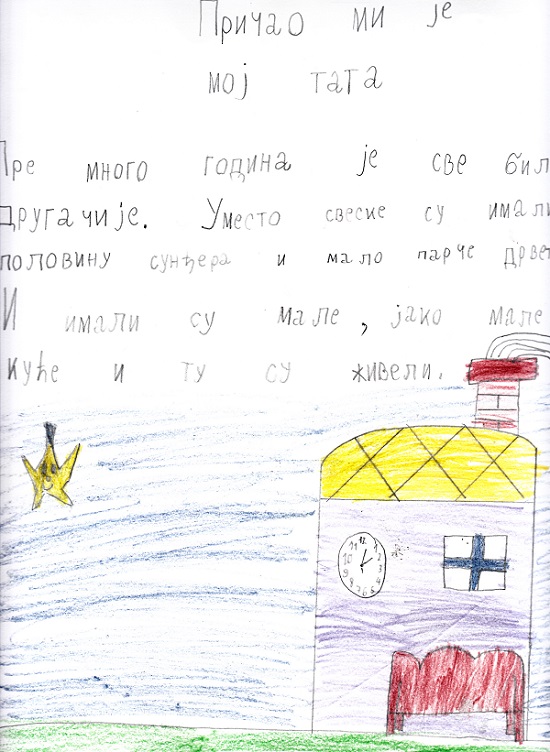 Причао ми је
мој тата
Пре много година је све бил
другачије. Уместо свеске су имали
половину сунђера и мало парче дрвет
И имали су мале, јако мале
куће и ту су живели.